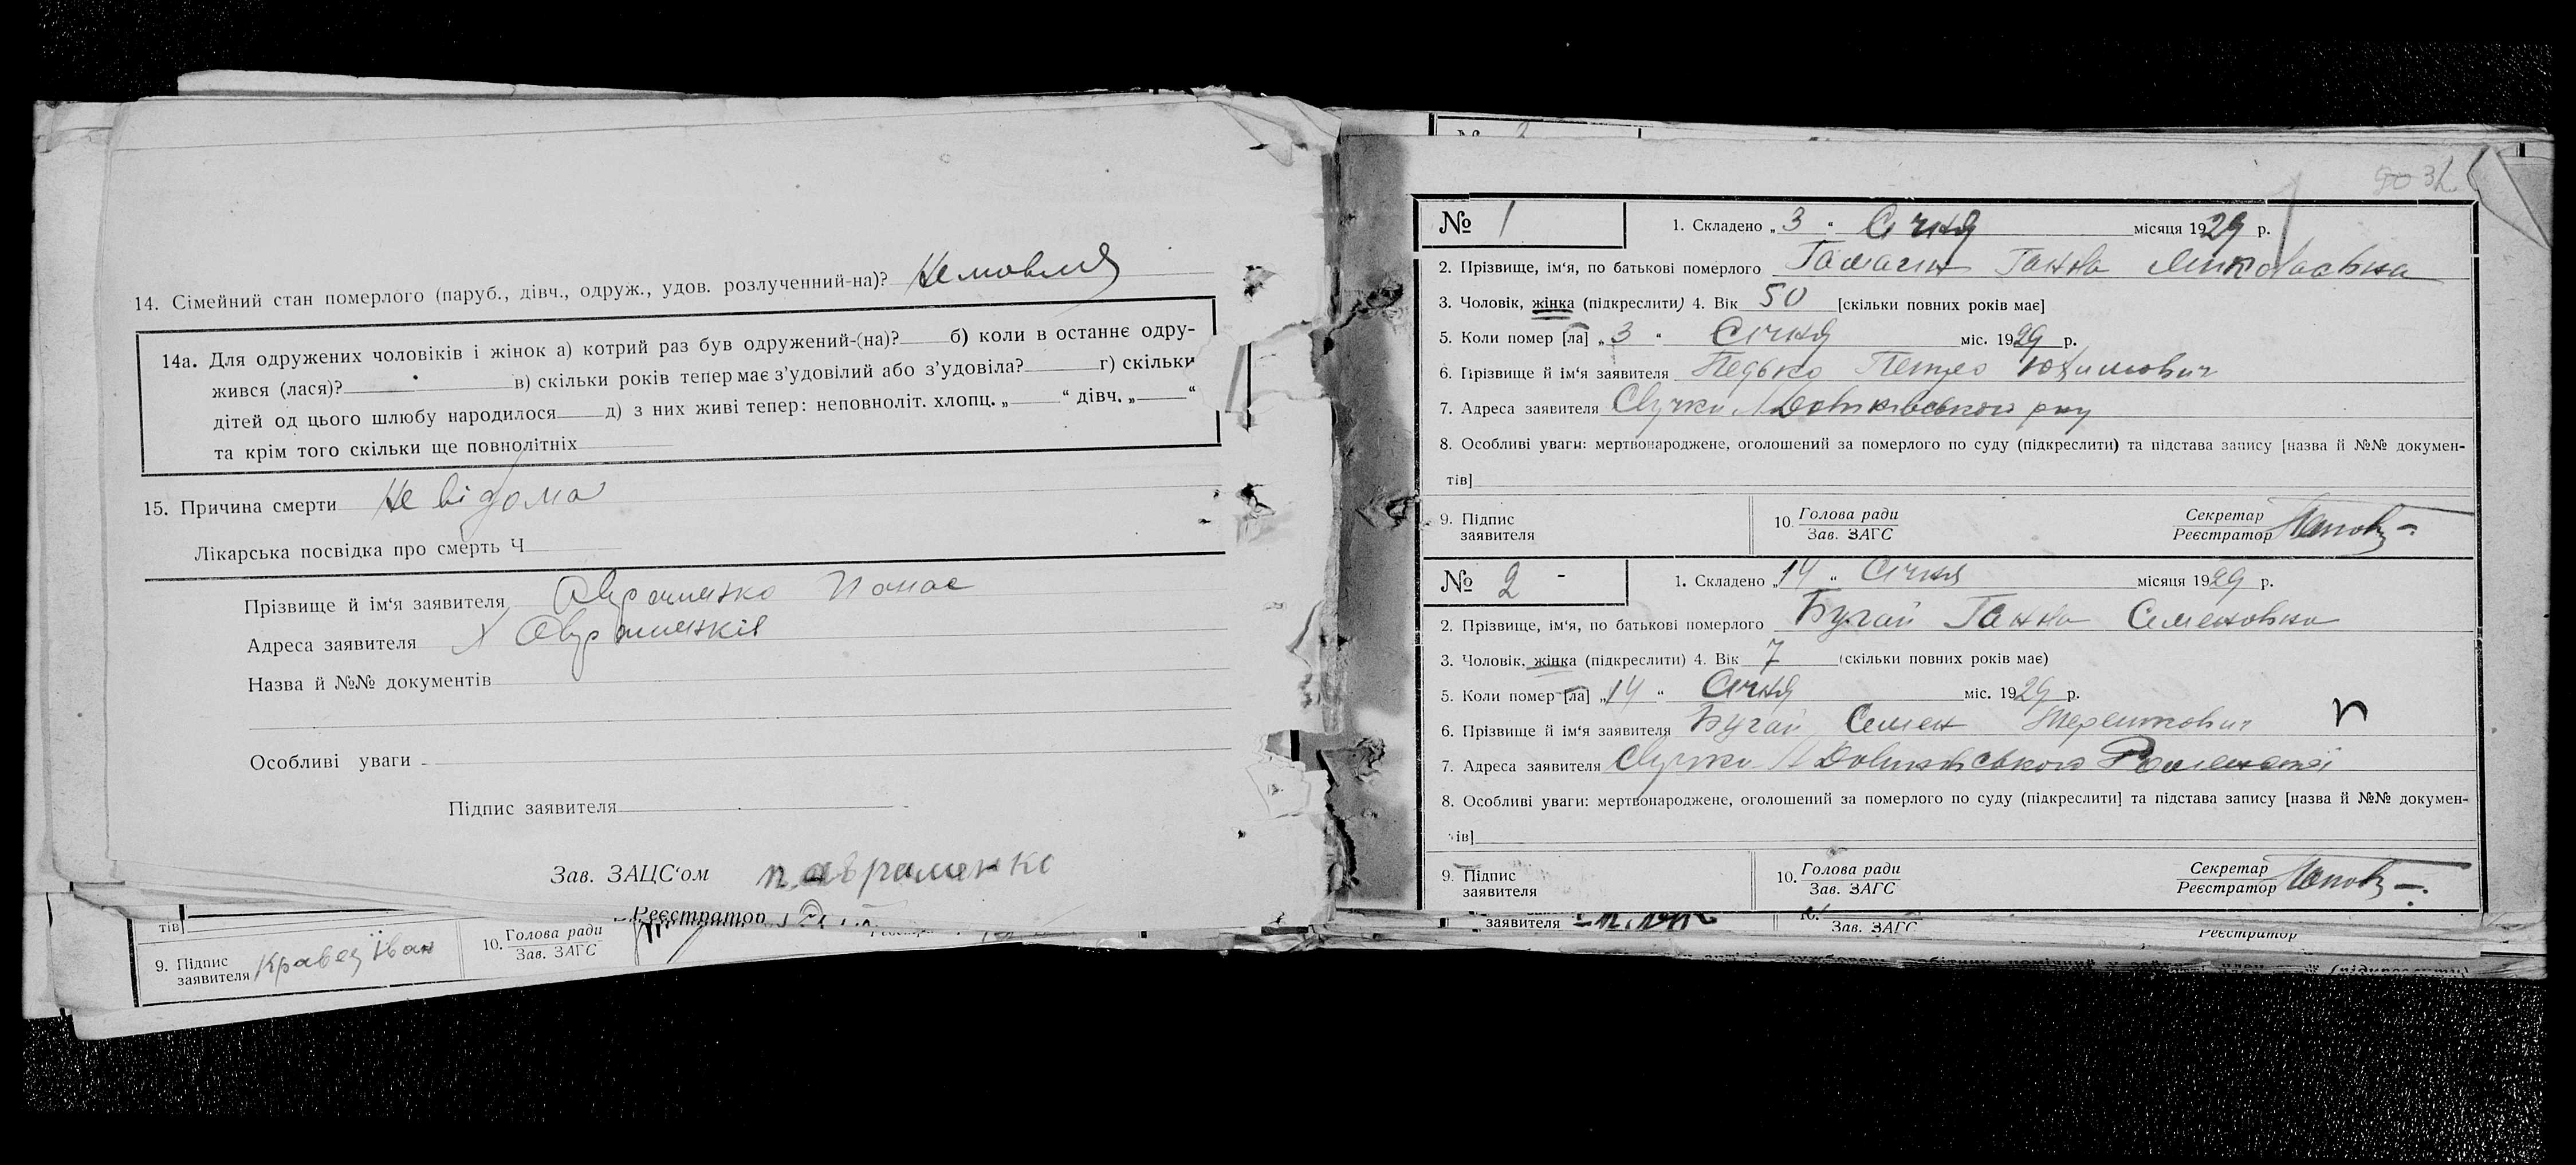 14. Сімейний стан померлого (паруб., дівч., одруж., удов. розлученний-на)? Немовля
14а. Для одружених чоловіків і жінок а) котрий раз був одружений-(на)? б) коли в останнє одру-
жився (лася)? в) скільки років тепер має з’удовілий або з’удовіла? г) скільки
дітей од цього шлюбу народилося д) з них живі тепер: неповноліт. хлопц. „ “ дівч. „ “
та крім того скільки ще повнолітніх
15. Причина смерти Не відома
Лікарська посвідка про смерть Ч
Прізвище й ім’я заявителя Авраменко Панас
Адреса заявителя х Авраменків
Назва й №№ документів
Особливі уваги
Підпис заявителя
Зав. ЗАЦС‘ом П. Авраменко
Реєстратор
тів]
9. Підпис заявителя Кравец Іван
10. Голова ради
Зав. ЗАГС
32
№ 1
1. Складено „3“ Січня місяця 1929 р.
2. Прізвище, ім‘я, по батькові померлого Ганна Миколаєвна
3. Чоловік, жінка (підкреслити) 4. Вік 50 [скільки повних років має]
5. Коли помер [ла] „3“ Січня міс. 1929 р.
6. Прізвище й ім‘я заявителя Педько Петро Юхимович
7. Адреса заявителя
8. Особливі уваги: мертвонароджене, оголошений за померлого по суду (підкреслити) та підстава запису [назва й №№ докумен-
тів]
9. Підпис
заявителя
10. Голова ради
Зав. ЗАГС
Секретар
Реєстратор
№ 2 -
1. Складено „14“ Січня місяця 1929 р.
2. Прізвище, ім‘я, по батькові померлого Бугай Ганна Семеновна
3. Чоловік, жінка (підкреслити) 4. Вік 7 (скільки повних років має)
5. Коли помер [ла] „14“ Січня міс. 1929 р.
6. Прізвище й ім‘я заявителя Бугай Семен
7. Адреса заявителя
8. Особливі уваги: мертвонароджене, оголошений за померлого по суду (підкреслити] та підстава запису [назва й №№ докумен-
ів]
9. Підпис
заявителя
10. Голова ради
Зав. ЗАГС
Секретар
Реєстратор
заявителя
10.
Зав. ЗАГС
Реєстратор